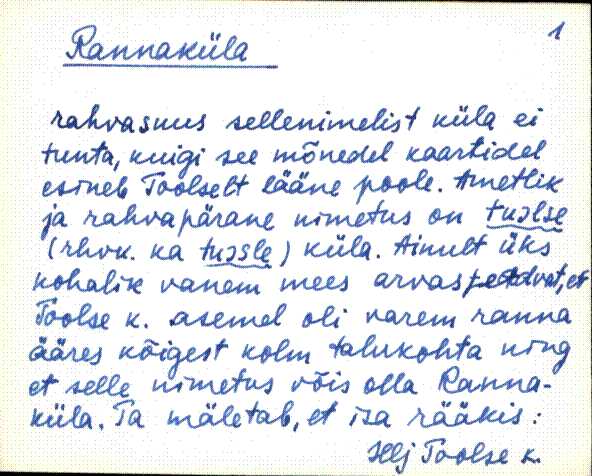 1
Rannaküla
rahvasuus sellenimelist küla ei
tunta, kuigi see mõnedel kaartidel
esineb Toolselt lääne poole. Ametlik
ja rahvapärane nimetus on tuɔlse
(rhvk. ka tuɔsle) küla. Ainult üks
kohalik vanem mees arvas, et
Toolse k. asemel oli varem ranna
ääres kõigest kolm talukohta ning
et selle nimetus võis olla Ranna-
küla. Ta mäletab, et isa rääkis:
Hlj Toolse k.